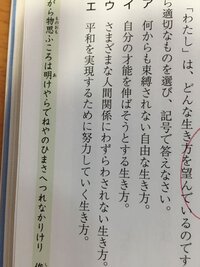 「わたし」は、どんな生き方を望んでいるのです
ら適切なものを選び、記号で答えなさい。
ア　何からも束縛されない自由な生き方。
イ　自分の才能を伸ばそうとする生き方。
ウ　さまざまな人間関係にわずらわされない生き方。
エ　平和を実現するために努力していく生き方。
がら物思ふころは明けやらでねやのひまさへつれなかりけり